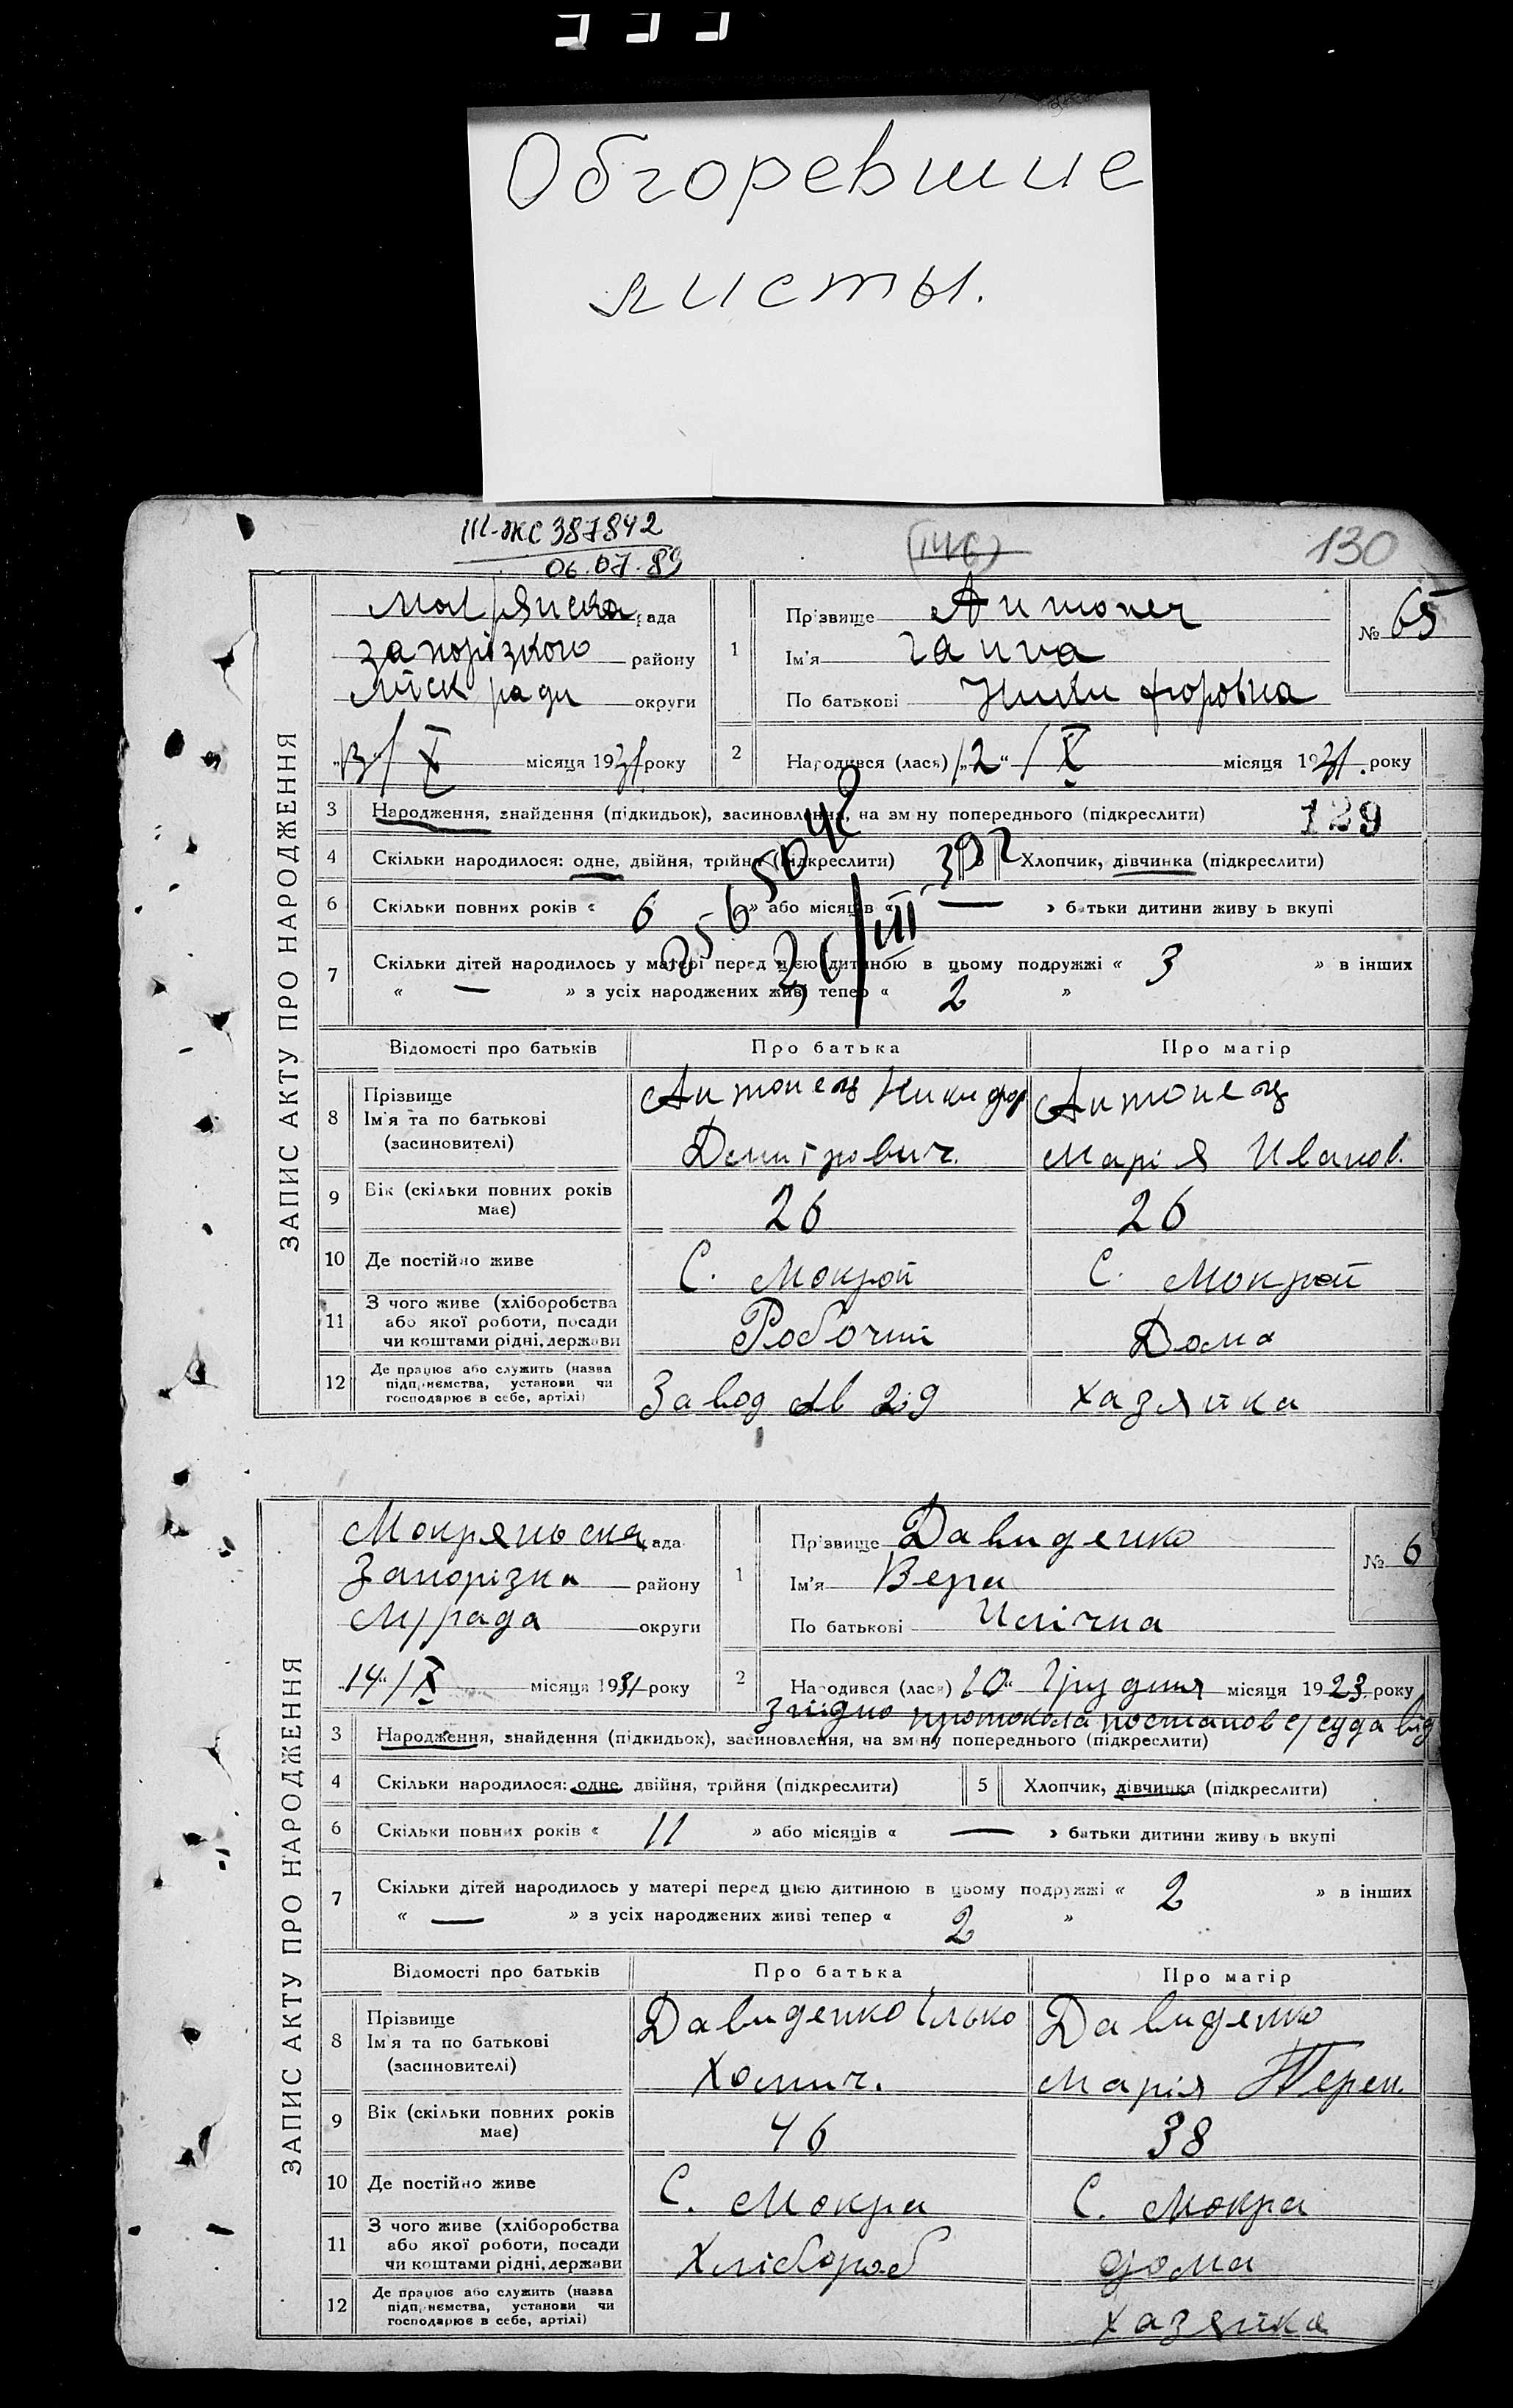 Обгоревшие
листы.
III-ЖС 387842
06.07.89
130
ЗАПИС АКТУ ПРО НАРОДЖЕННЯ
рада
запорізкого району
міск ради округи
1
Прізвище Антонец
Ім'я Ганна
По батькові Никифоровна
№ 65
13/X місяця 1931 року
2
Народився (лася) „12“ / X місяця 1931. року
3 Народження, знайдення (підкидьок), засиновлення, на зміну попереднього (підкреслити) 129
4 Скільки народилося: одне, двійня, трійня (підкреслити) Хлопчик, дівчинка (підкреслити)
6 Скільки повних років « 6 » або місяців « — » батьки дитини живуть вкупі
7 Скільки дітей народилось у матері перед цією дитиною в цьому подружжі « 3 » в інших
« — » з усіх народжених живі тепер « 2 »
26/III
Відомості про батьків Про батька Про матір
8 Прізвище
Ім'я та по батькові
(засиновителі)
Антонец Никифор
Дмитрович.
Антонец
Марія Иванов.
9 Вік (скільки повних років має) 26 26
10 Де постійно живе С. Мокрой С. Мокрой
11 З чого живе (хліборобства
або якої роботи, посади
чи коштами рідні, держави
Робочий Дома
12 Де працює або служить (назва
підприємства, установи чи
господарює в себе, артілі)
Завод № 29 хазяйка
ЗАПИС АКТУ ПРО НАРОДЖЕННЯ
Мокряньска рада
Запорізка району
М/рада округи
1
Прізвище Давиденко
Ім'я Вера
По батькові Иллічна
№ 6
„14“/X місяця 1931 року
2
Народився (лася) 10“ Грудня місяця 1923 року
згідно протокола постанов с/суда від
3 Народження, знайдення (підкидьок), засиновлення, на зміну попереднього (підкреслити)
4 Скільки народилося: одне, двійня, трійня (підкреслити) 5 Хлопчик, дівчинка (підкреслити)
6 Скільки повних років « 11 » або місяців « — » батьки дитини живуть вкупі
7 Скільки дітей народилось у матері перед цією дитиною в цьому подружжі « 2 » в інших
« — » з усіх народжених живі тепер « 2 »
Відомості про батьків Про батька Про матір
8 Прізвище
Ім'я та по батькові
(засиновителі)
Давиденко Ілько
Хомич.
Давиденко
Марія Терен.
9 Вік (скільки повних років має) 46 38
10 Де постійно живе С. Мокра С. Мокра
11 З чого живе (хліборобства
або якої роботи, посади
чи коштами рідні, держави
Хлібороб дома
12 Де працює або служить (назва
підприємства, установи чи
господарює в себе, артілі)
хазяйка